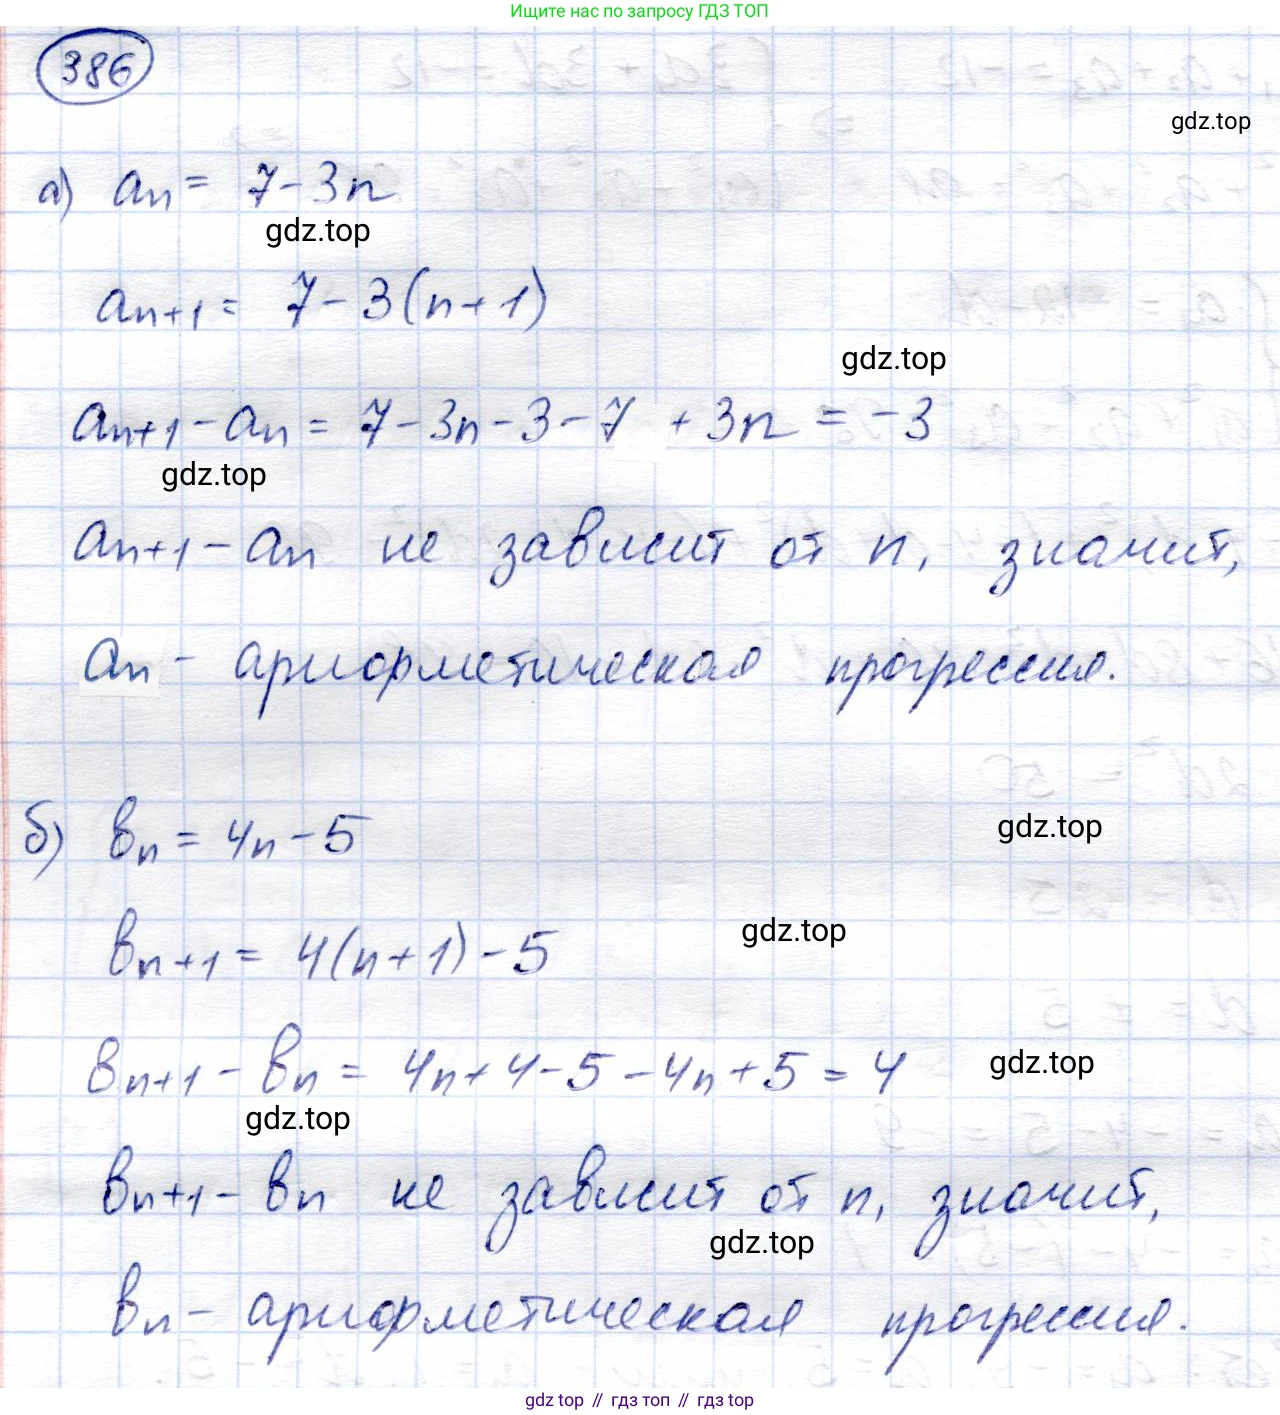 Ищите нас по запросу ГДЗ ТОП
386
gdz.top
а) an = 7 - 3n
gdz.top
an+1 = 7 - 3(n+1)
gdz.top
an+1 - an = 7 - 3n - 3 - 7 + 3n = -3
gdz.top
an+1 - an не зависит от n, значит,
an - арифметическая прогрессия.
б) bn = 4n - 5
gdz.top
bn+1 = 4(n+1) - 5
gdz.top
bn+1 - bn = 4n + 4 - 5 - 4n + 5 = 4
gdz.top
gdz.top
bn+1 - bn не зависит от n, значит,
gdz.top
bn - арифметическая прогрессия.
gdz top // гдз топ // гдз top